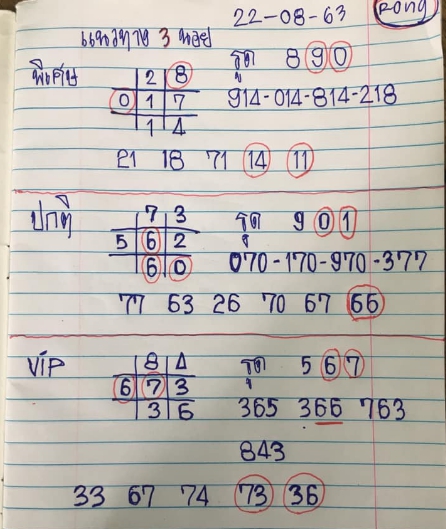 22-08-63 Rong
แนวทาง 3 นอย
พิเศษ
2 8
0 1 7
1 4
รูด 8 9 0
914-014-814-218
21 18 71 14 11
ปกติ
7 3
5 6 2
6 0
รูด 9 0 1
070-170-970-377
77 63 26 70 67 66
VIP
8 4
6 7 3
3 6
รูด 5 6 7
365 366 763
843
33 67 74 73 36